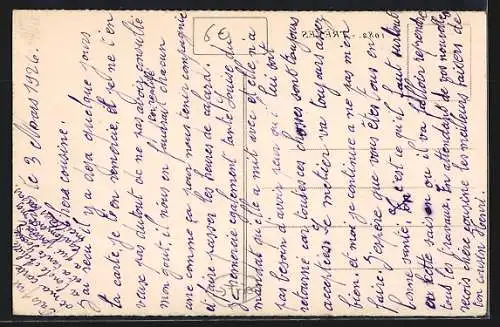 le 3 Mars 1926.
Chère cousine.
J'ai reçu il y a déjà quelque jours
la carte, je t'en remercie, et je ne t'en
veux pas surtout de ne pas avoir conseillé
mon gout, il nous en faudrait chacun
en réalité
une comme ça pour nous tenir compagnie
et faire passer les heures de cafard.
Je remercie également tante Louise du
mandat qu'elle a mit avec et elle n'a
pas besoin d'avoir peur qu'il lui soit
retourné car toutes ces choses sont toujours
acceptées. Le métier va toujours assez
bien. et moi je continue a ne pas m'en
faire. J'espère que vous êtes tous en
bonne santé, c'est ce qu'il faut surtout
en cette saison ou il va falloir reprendre
tous les travaux. En attendant de vos nouvelles
reçois chère cousine les meilleurs baisers de
ton cousin Henri.
TRÈVES